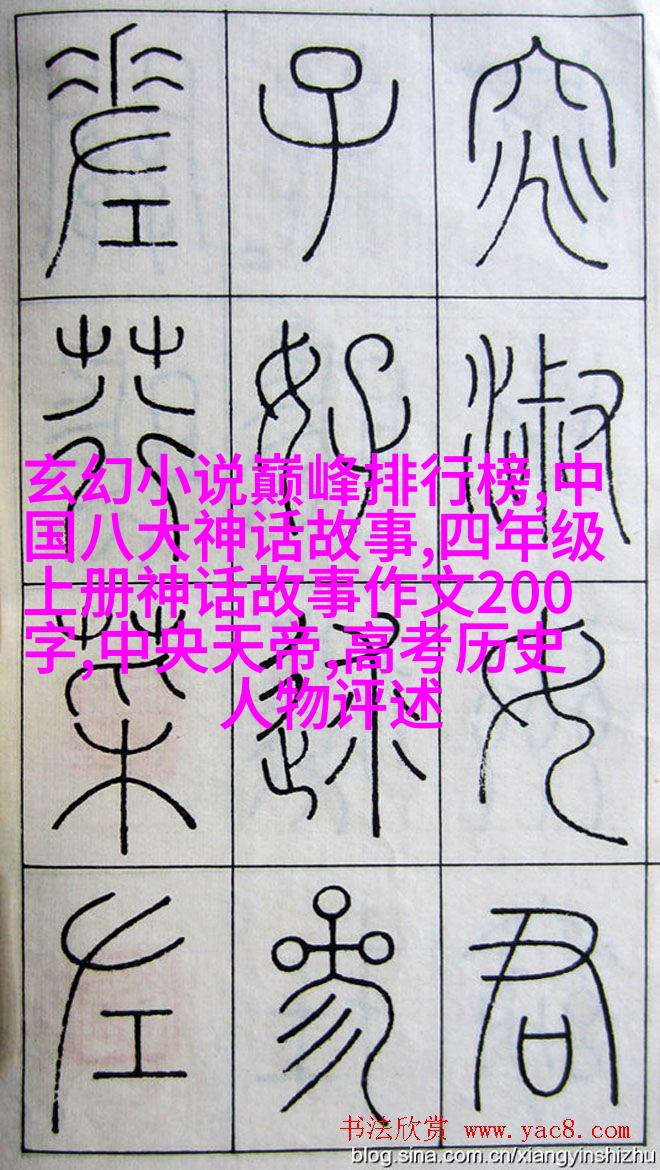 窕淑女君
子好逑參
差荇菜左
玄幻小说巅峰排行榜,中
国八大神话故事,四年级
上册神话故事作文200
字,中央天帝,高考历史
人物评述
书法欣赏 www.yac8.com
blog.sina.com.cn/xiangyinshizhu